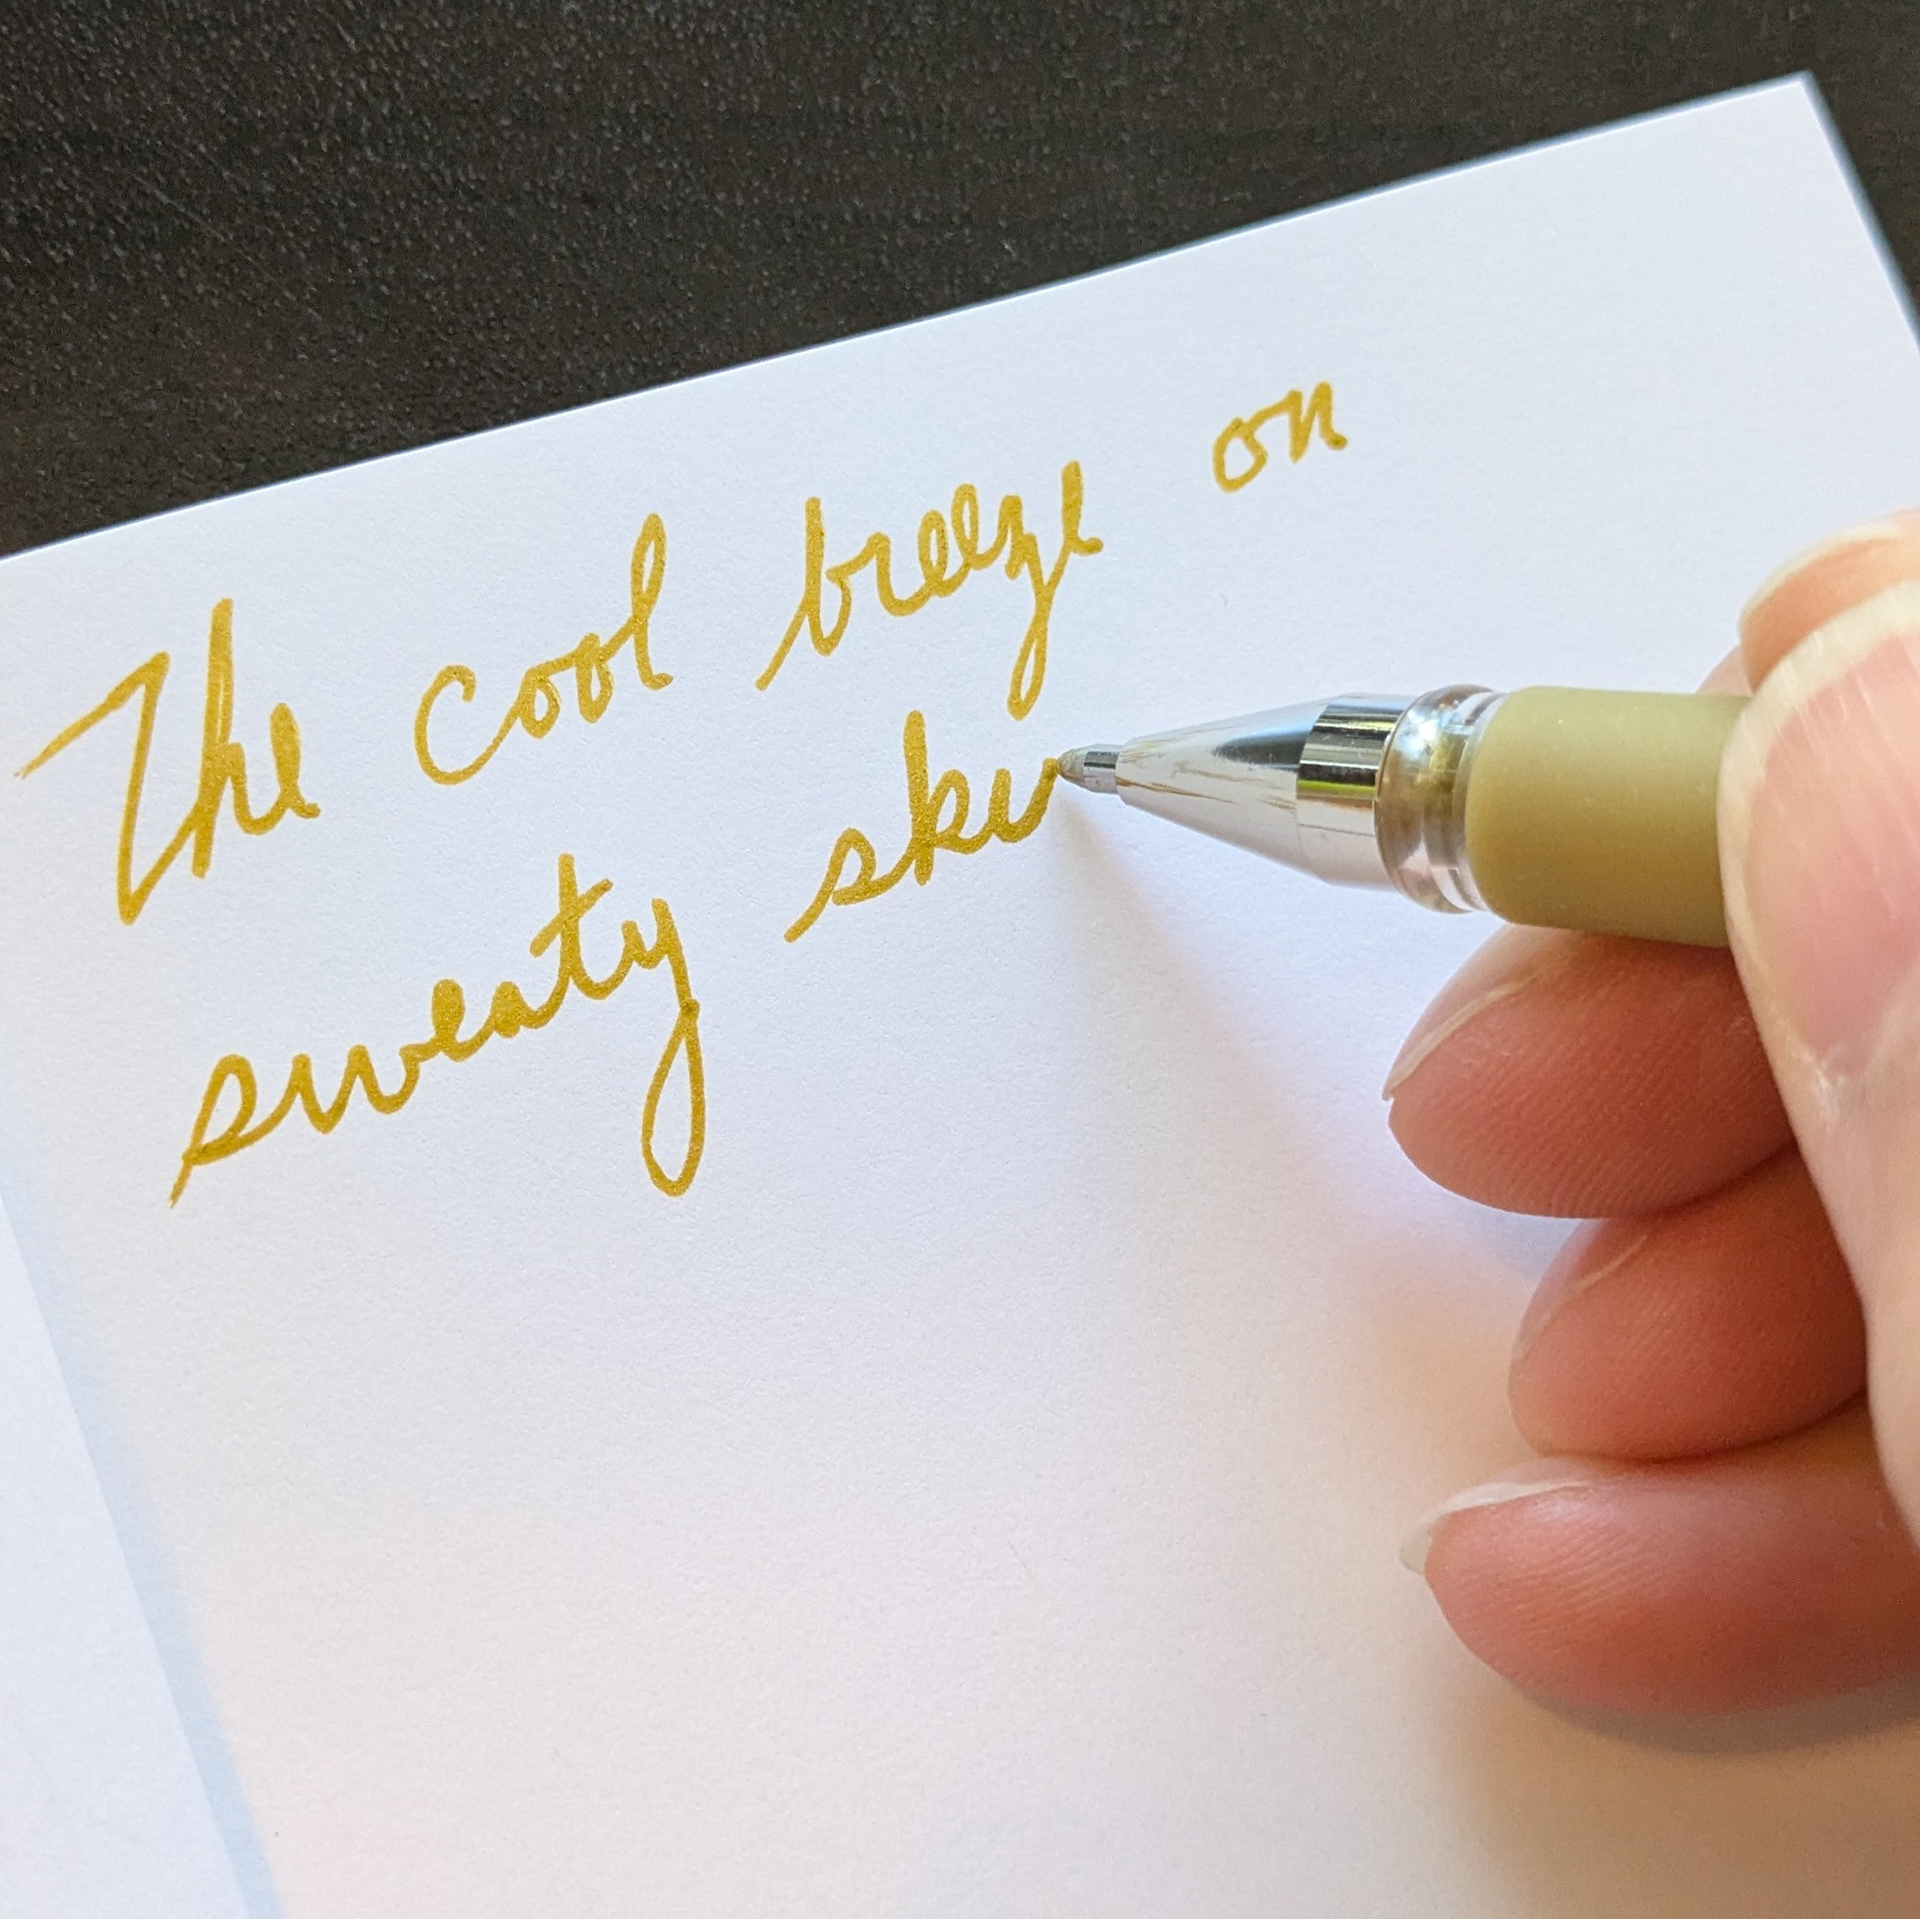 The cool breeze on
sweaty ski